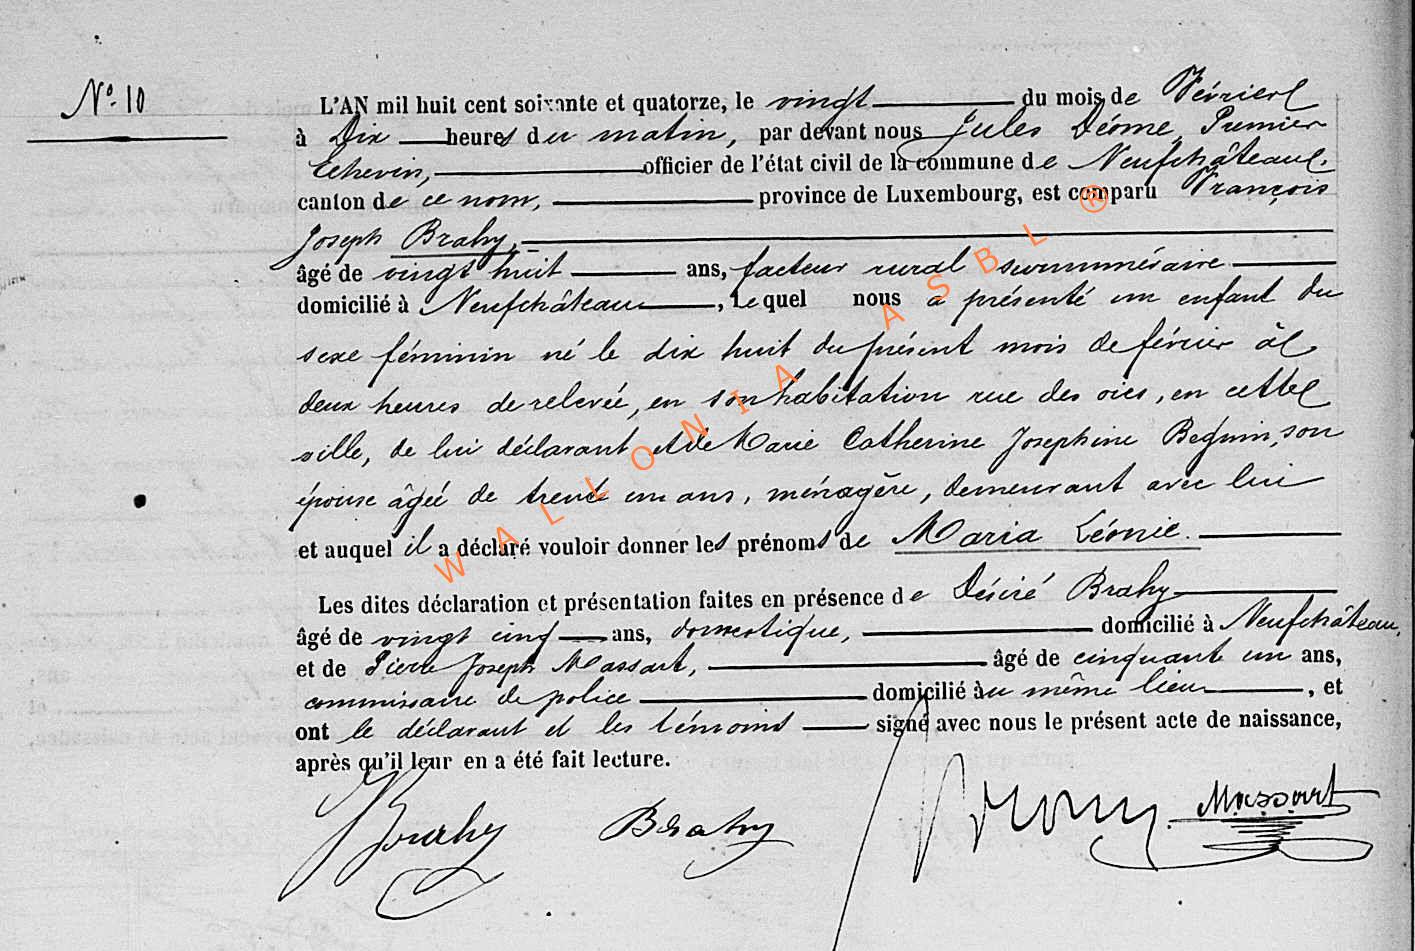 N° 10
L'AN mil huit cent soixante et quatorze, le vingt du mois de Février
à Dix heures du matin, par devant nous Jules Déome, Premier
Echevin, officier de l'état civil de la commune de Neufchâteau,
canton de ce nom, province de Luxembourg, est comparu François
Joseph Brahy,
âgé de vingt huit ans, facteur rural surnuméraire
domicilié à Neufchâteau, Lequel nous a présenté un enfant du
sexe féminin né le dix huit du présent mois de février à
deux heures de relevée, en son habitation rue des oies, en cette
ville, de lui déclarant et de Marie Catherine Josephine Beguin, son
épouse âgée de trente un ans, ménagère, demeurant avec lui
et auquel il a déclaré vouloir donner les prénoms de Maria Léonie.
Les dites déclaration et présentation faites en présence de Désiré Brahy
âgé de vingt cinq ans, domestique, domicilié à Neufchâteau,
et de Pierre Joseph Massart, âgé de cinquante un ans,
commissaire de police domicilié au même lieu, et
ont le déclarant et les témoins signé avec nous le présent acte de naissance,
après qu'il leur en a été fait lecture.
Brahy Brahy Massart
WALLONIA ASBL ®